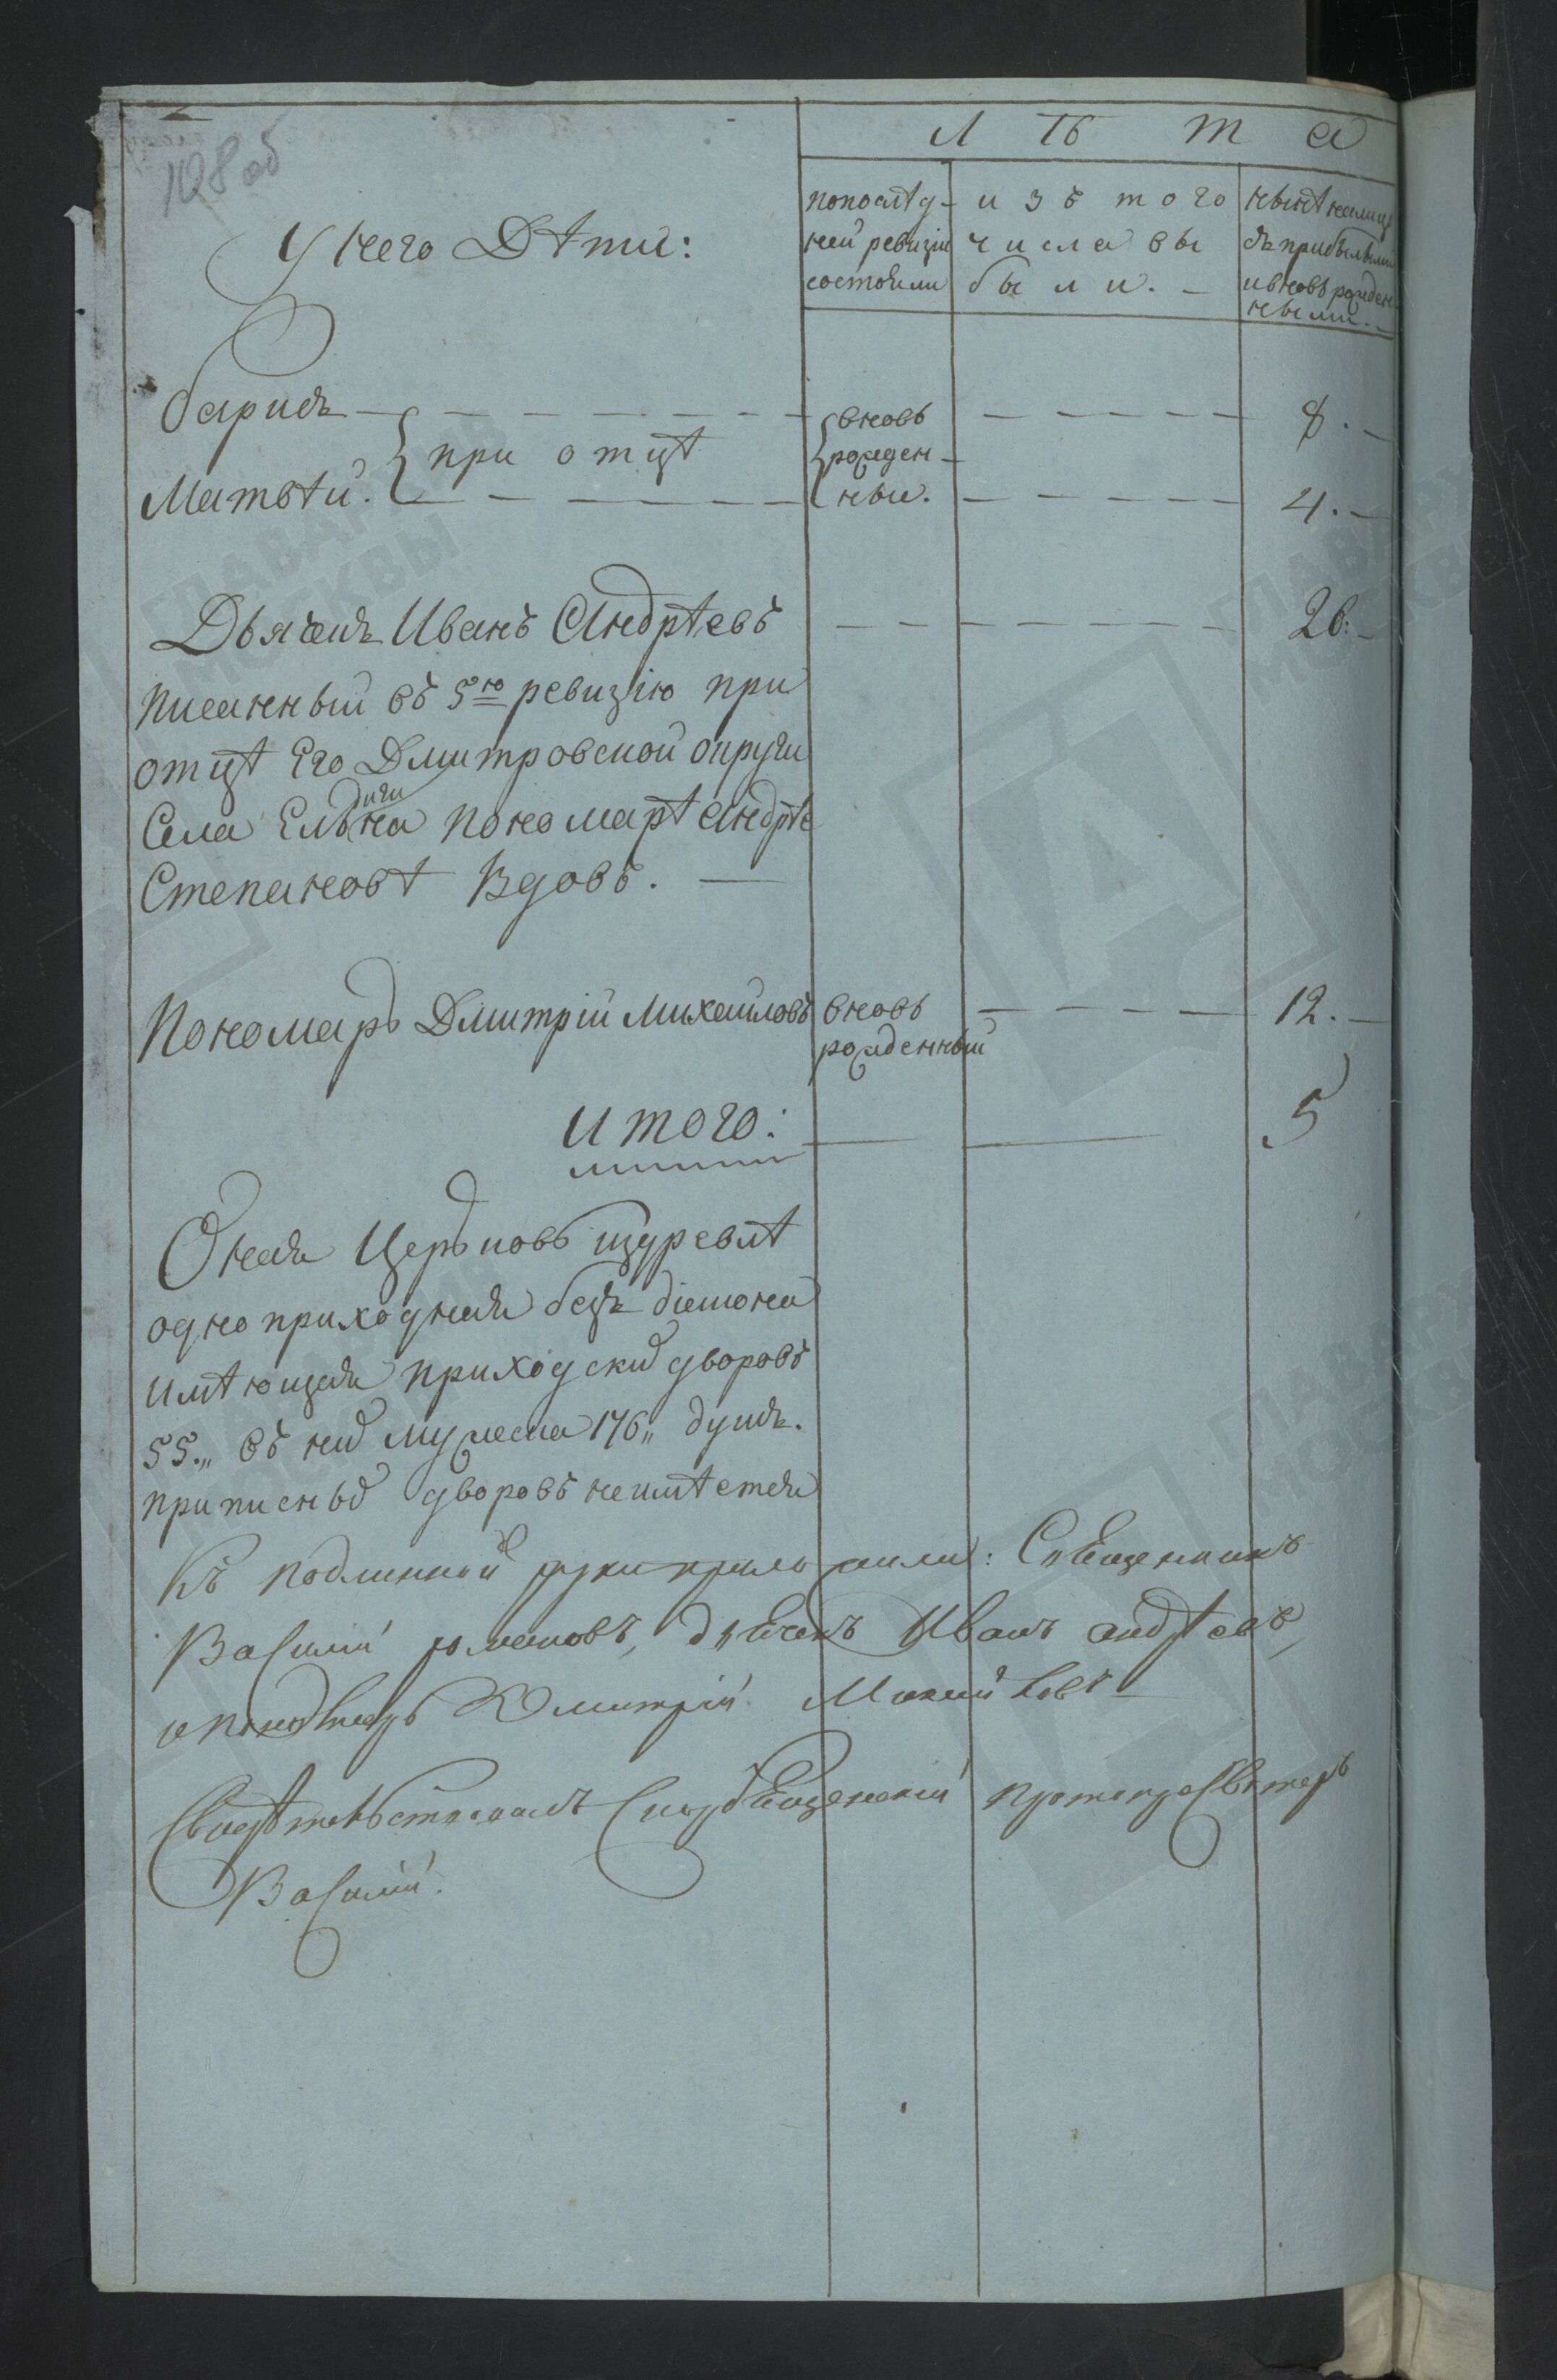 108 об
Л Ѣ т а
У него Дѣти:
попослѣд-
ней ревизіи
состояли
изъ того
числа вы
были. -
нынѣ налице
съ прибылыми
ивновь рожден
ными. -
Борисъ
Матвѣй.
при отцѣ
вновь
рожден-
ныи.
8.
4.
Дьячекъ Иванъ Андрѣевъ 26.
писанный въ 5ю ревизію при
отцѣ Его Дмитровской округи
диги
Села Ельдигина пономарѣ Андрѣе
Степановѣ Вдовъ. —
Пономарь Дмитрій Михайловъ вновь рожденный 12.
итого: 5
Оная Церьковь
одно приходная безъ діакона
имѣющая приходскихъ дворовъ
55.„ въ нихъ мужеска 176„ душъ.
приписныхъ дворовъ неимѣется
Къ подлинной руки приложили: Священникъ
Василій романовъ, дьячекъ Иванъ андрѣевъ,
и пономарь Дмитрій Михайловъ
Свидѣтельствовалъ Протопресвитеръ
Василій.
ГЛАВАРХИВ
МОСКВЫ